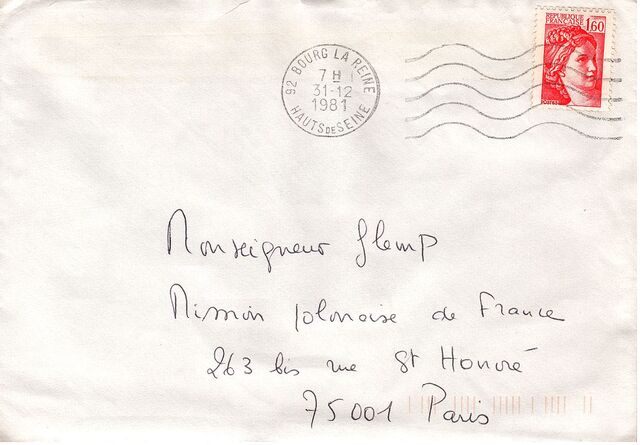 REPUBLIQUE
FRANCAISE 1,60
POSTES
92 BOURG LA REINE
7 H
31-12
1981
HAUTS DE SEINE
Monseigneur Glemp
Mission polonaise de France
263 bis rue St Honoré
75001 Paris